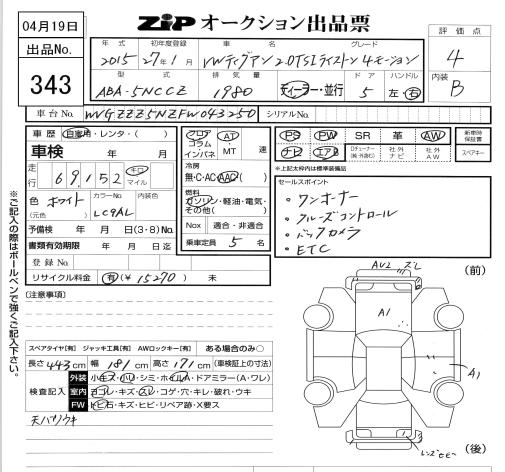 04月19日
出品No.
343
ZIP オークション出品票
評価点
4
内装
B
年式 初年度登録 車名 グレード
2015 27年1月 VWティグアン 2.0TSI 4モーション
型式 排気量 ドア ハンドル
ABA-5NCCZ 1980 ディーラー・並行 5 左・右
車台No. WVGZZZ5NZFW043250 シリアルNo.
車歴 自家用・レンタ・( )
車検 年 月
走行 69,152 キロ マイル
色 ホワイト カラーNo. LC9AL 内装色
(元色)
予備検 年 月 日(3・8)No.
書類有効期限 年 月 日迄
登録No.
リサイクル料金 有(¥ 15270 ) 未
フロア コラム インパネ AT・MT 速
冷房
無・C・AC・AAC
燃料
ガソリン・軽油・電気・その他( )
Nox 適合・非適合
乗車定員 5 名
PS PW SR 革 AW
ナビ エアB Dチューナー 社外ナビ 社外AW
新車時保証書
スペアキー
※上記太枠内は標準装備
セールスポイント
・ワンオーナー
・クルーズコントロール
・バックカメラ
・ETC
※ご記入の際はボールペンで強くご記入下さい。
[注意事項]
スペアタイヤ[有] ジャッキ工具[有] AWロックキー[有] ある場合のみ○
長さ 443 cm 幅 181 cm 高さ 171 cm (車検証上の寸法)
検査記入
外装 小キズ・小凹・シミ・ホイルA・ドアミラー(A・ワレ)
室内 ヨゴレ・キズ・スレ・コゲ・穴・キレ・破れ・ウキ
FW トビ石・キズ・ヒビ・リペア跡・X要ス
天バリウキ
(前)
AU2 ズレ
A1
A1
(後)